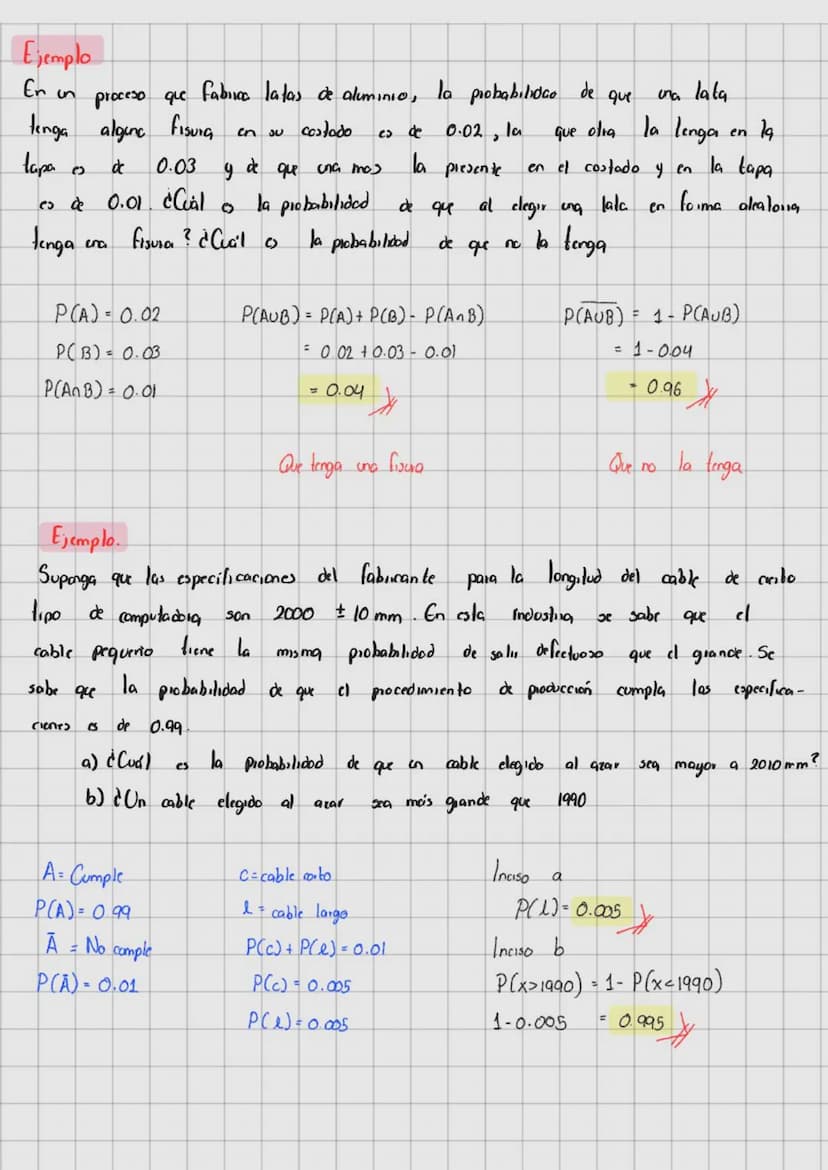 Ejemplo
En un proceso que fabrica latas de aluminio, la probabilidad de que una lata
tenga alguna fisura en su costado es de 0.02, la que otra la tenga en la
tapa es de 0.03 y de que una mas la presente en el costado y en la tapa
es de 0.01. ¿Cuál es la probabilidad de que al elegir una lata en forma aleatoria
tenga una fisura? ¿Cuál es la probabilidad de que no la tenga
P(A) = 0.02 P(A∪B) = P(A) + P(B) - P(A∩B) P(\overline{A∪B}) = 1 - P(A∪B)
P(B) = 0.03 = 0.02 + 0.03 - 0.01 = 1 - 0.04
P(A∩B) = 0.01 = 0.04 = 0.96
Que tenga una fisura Que no la tenga
Ejemplo.
Suponga que las especificaciones del fabricante para la longitud del cable de cierto
tipo de computadora son 2000 ± 10 mm. En esta industria se sabe que el
cable pequeño tiene la misma probabilidad de salir defectuoso que el grande. Se
sabe que la probabilidad de que el procedimiento de producción cumpla las especifica-
ciones es de 0.99.
a) ¿Cuál es la probabilidad de que un cable elegido al azar sea mayor a 2010 mm?
b) ¿Un cable elegido al azar sea más grande que 1990
A = Cumple c = cable corto Inciso a
P(A) = 0.99 l = cable largo P(l) = 0.005
Ā = No cumple P(c) + P(l) = 0.01 Inciso b
P(Ā) = 0.01 P(c) = 0.005 P(x>1990) = 1 - P(x<1990)
P(l) = 0.005 1 - 0.005 = 0.995